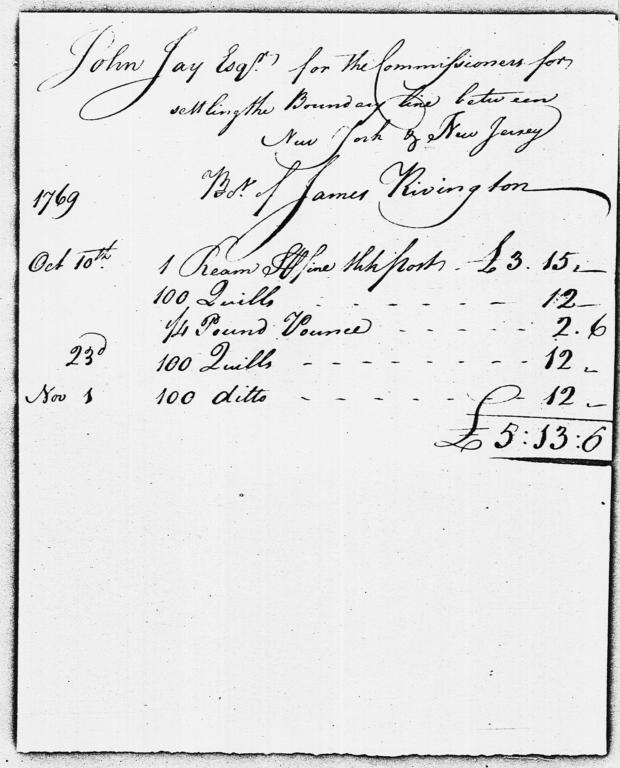 John Jay Esqr. for the Commissioners for
settling the Boundary Line between
New York & New Jersey
1769 Bot. of James Rivington
Oct 10th. 1 Ream fine thk post - £3. 15. —
100 Quills - - - - - 12 —
1/4 Pound Pounce - - - - 2. 6
23d 100 Quills - - - - - 12 -
Nov 1 100 ditto - - - - - 12 -
£5:13:6